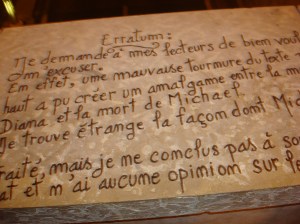 Erratum:
Je demande à mes lecteurs de bien voul
m'en excuser.
En effet, une mauvaise tourmure du texte
haut a pu créer un amalgame entre la m
Diana et la mort de Michael
Je trouve étrange la façon dont Mic
raité, mais je me comclus pas à so
at et m'ai aucume opiniom sur